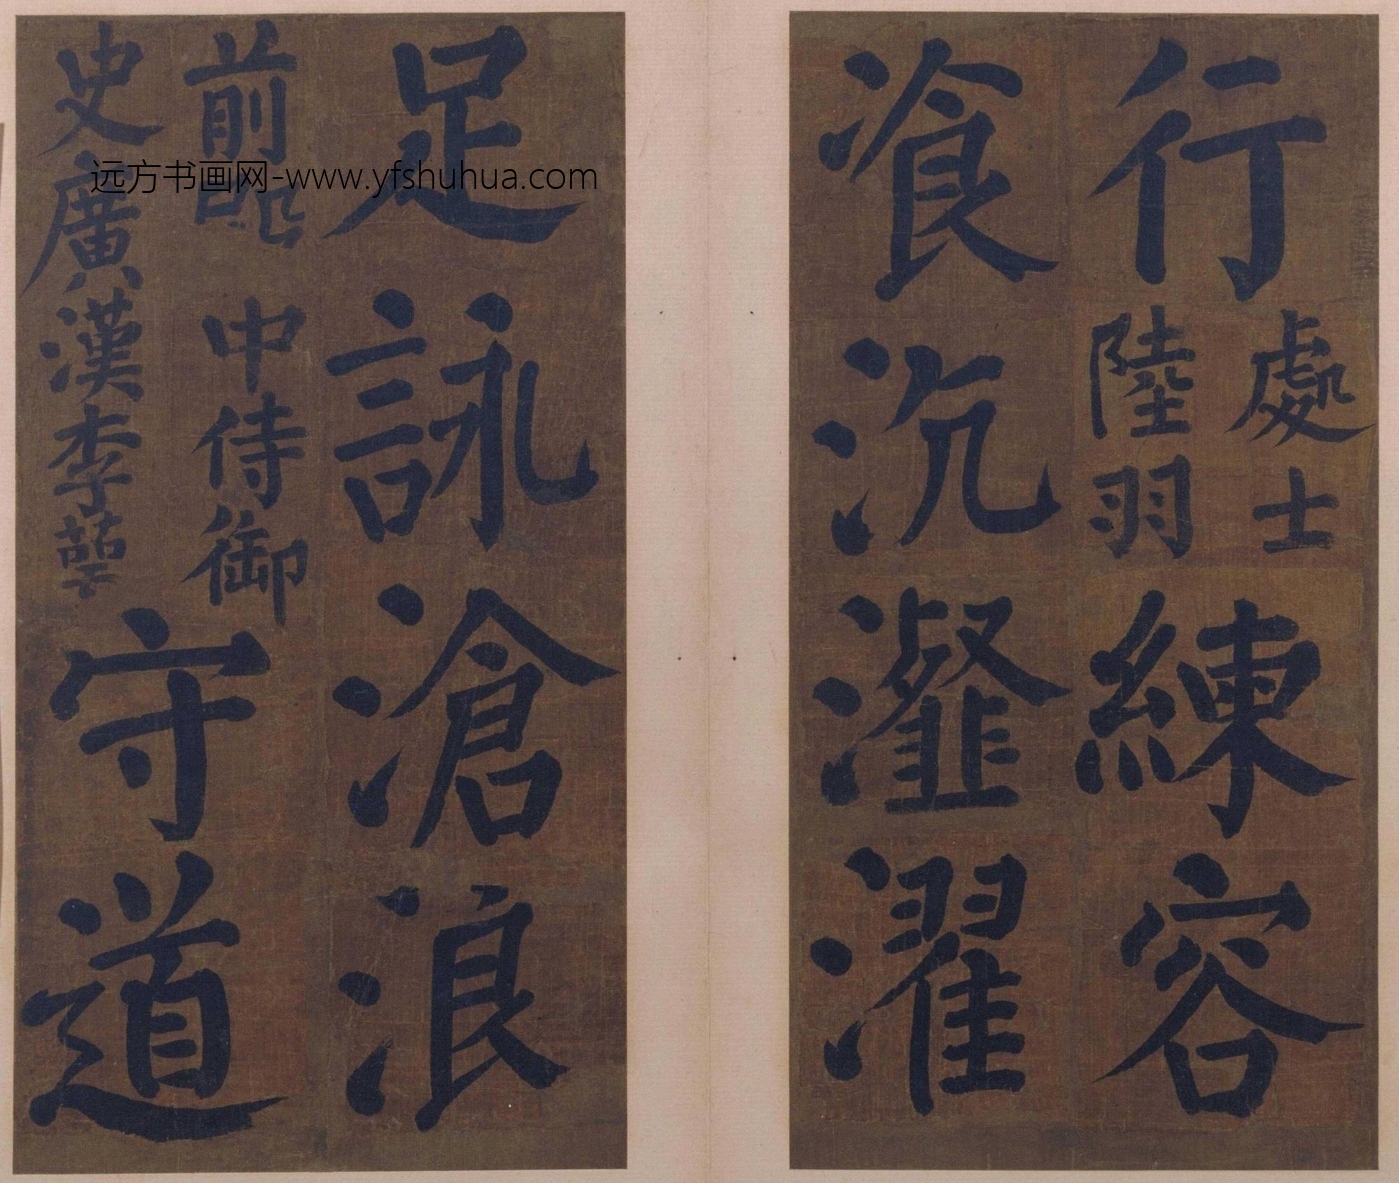 行
處士
陸羽
練容
飡沆瀣濯
足詠滄浪
前 中侍御
史廣漢李萼
守道
远方书画网-www.yfshuhua.com